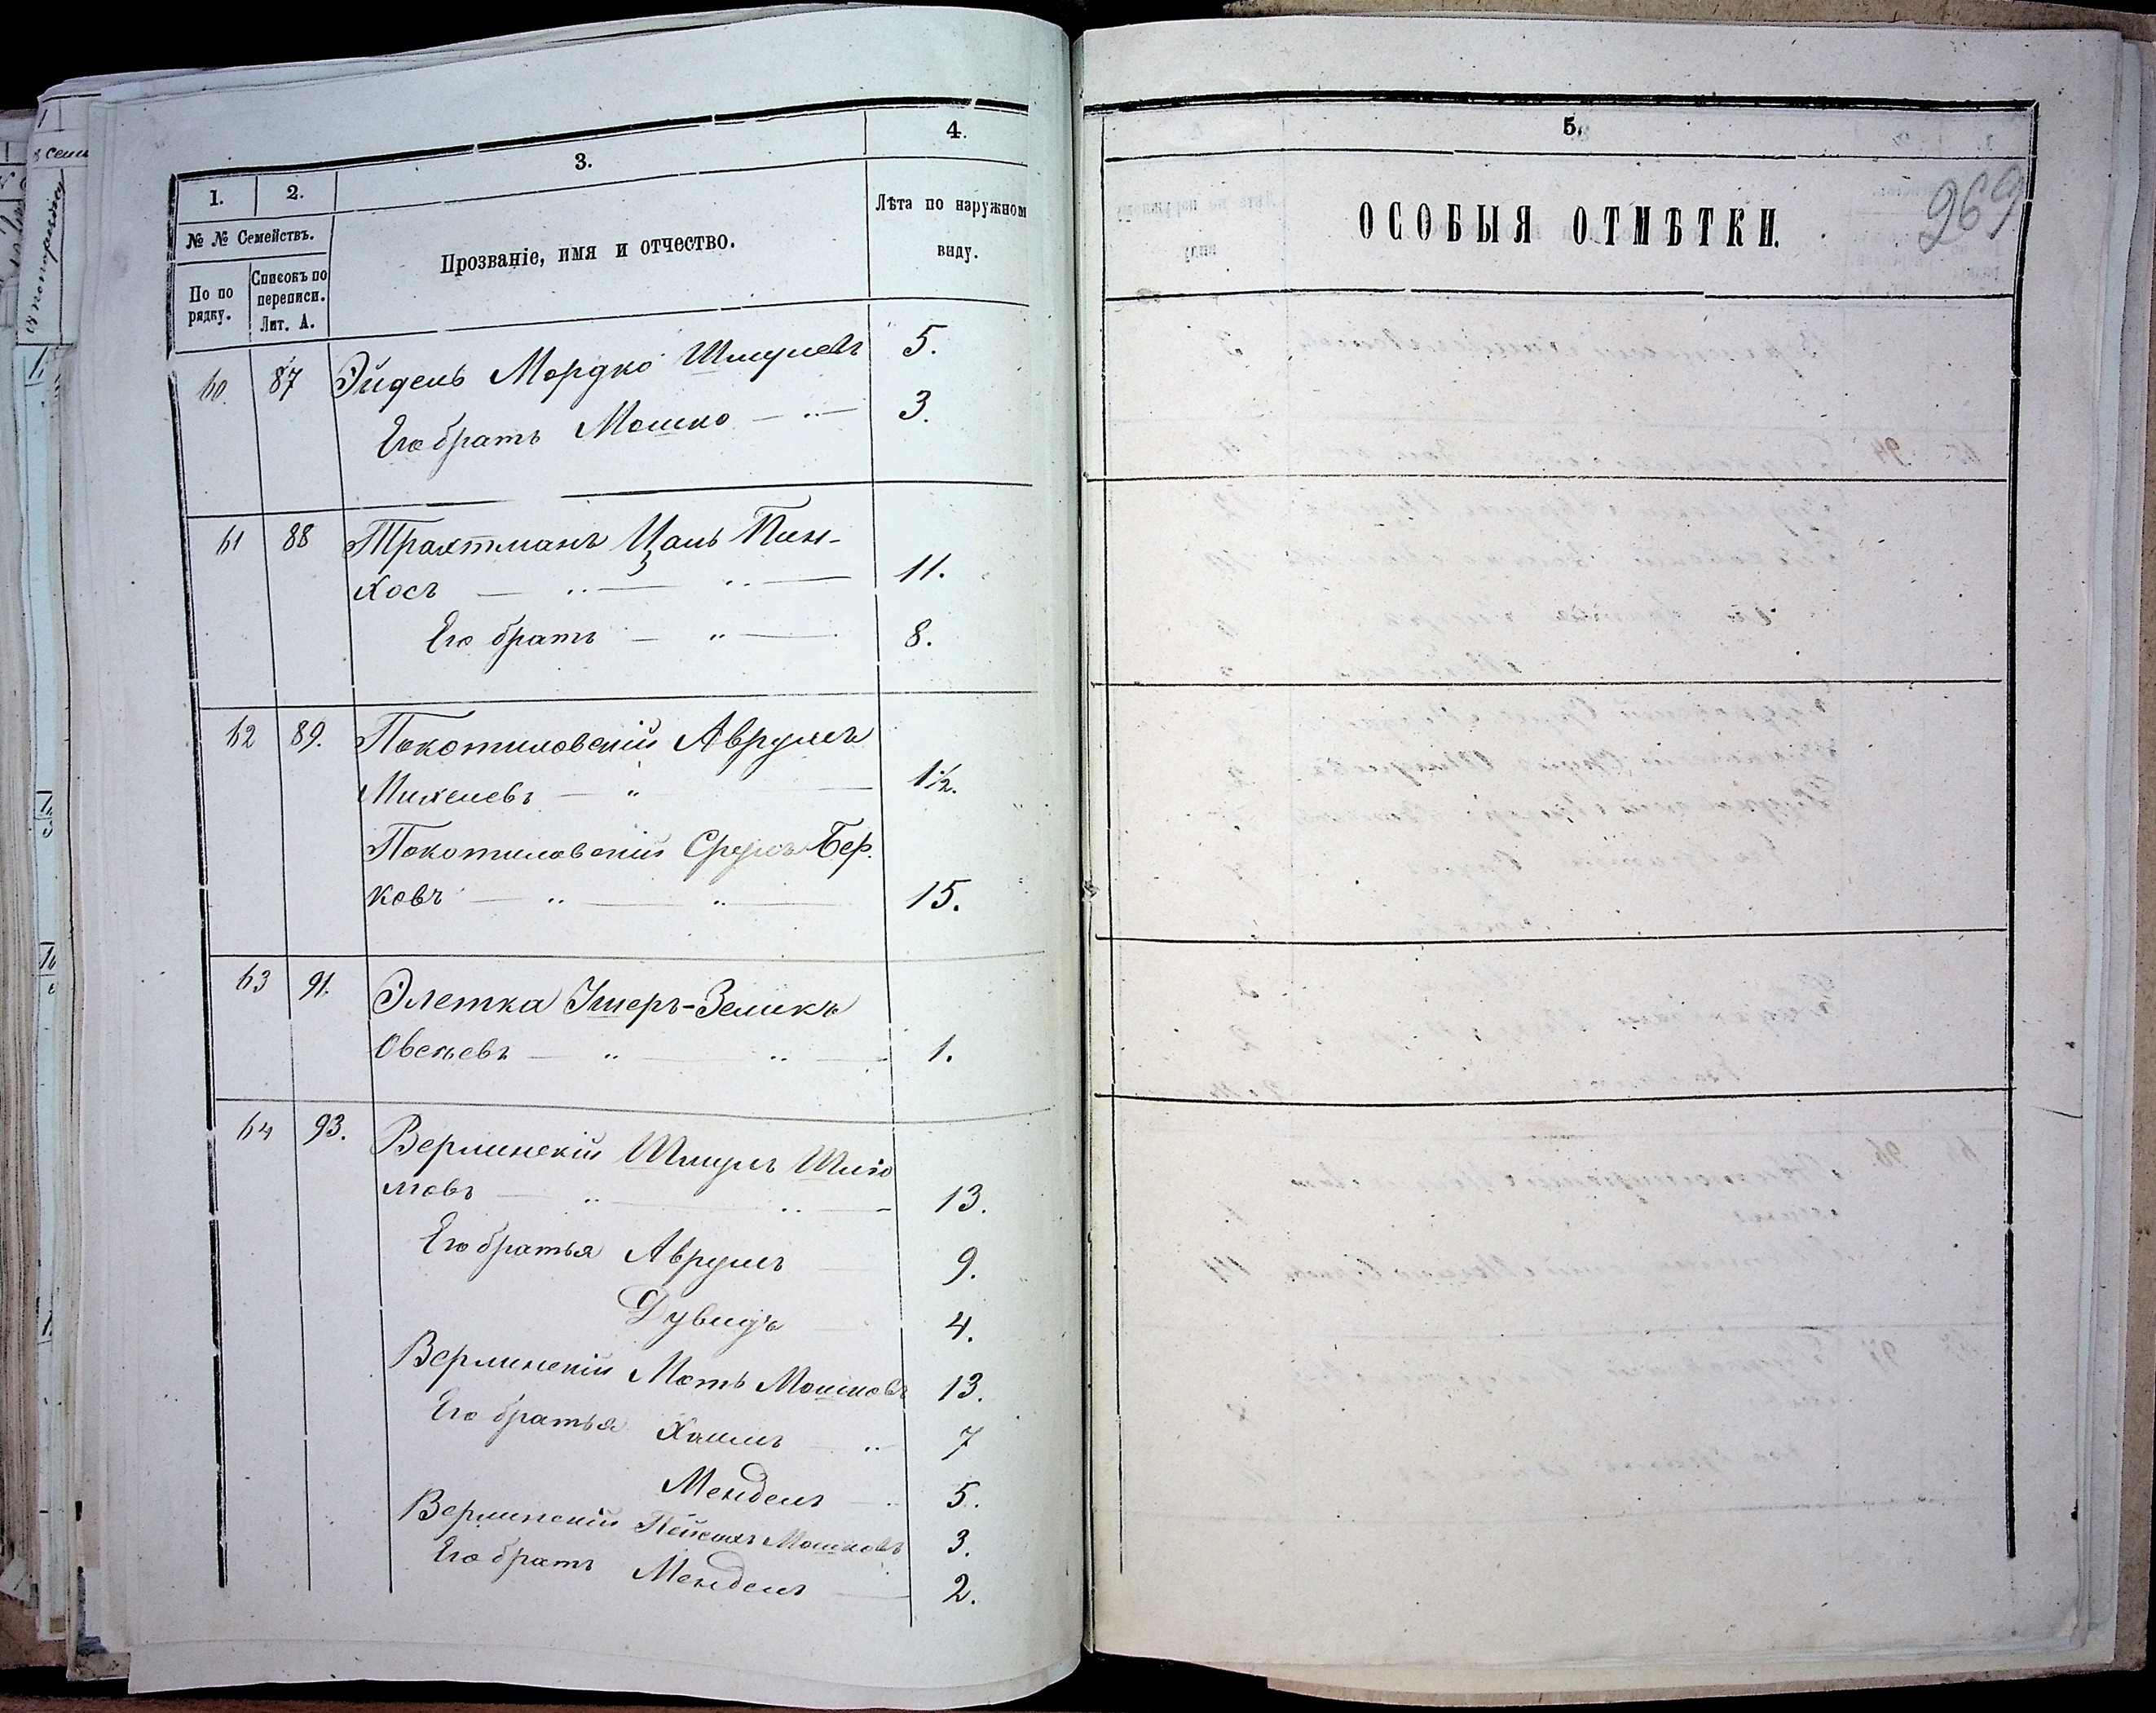 1.
2.
3.
4.
№ № Семействъ.
По по
рядку.
Списокъ по
переписи.
Лит. А.
Прозваніе, имя и отчество.
Лѣта по наружном
виду.
60. 87 Эйдель Мордко Шмулевъ 5.
Его братъ Мошко — „ — 3.
61 88 Трахтманъ Цаль Пин-
хосъ — „ — „ — 11.
Его братъ — „ — 8.
62 89. Покотиловскій Аврумъ
Михелевъ — „ — 1½.
Покотиловскій Сруль Бер-
ковъ — „ — „ — 15.
63 91. Элетка Ушеръ-Зеликъ
Овсеевъ — „ — „ — 1.
64 93. Верлинскій Шмуль Шлio
мовъ — „ — „ — 13.
Его братья Аврумъ — 9.
Дувидъ — 4.
Верлинскій Моть Мошковъ 13.
Его братья Хаимъ — „ 7
Мендель — 5.
Верлинскій Пейсахъ Мошковъ 3.
Его братъ Мендель — 2.
5.
ОСОБЫЯ ОТМѢТКИ.
269